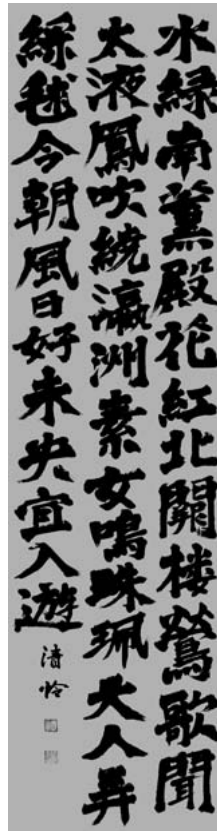 水緑南薰殿花紅北闕楼鶯歌聞
太液鳳吹繞瀛洲素女鳴珠珮天人弄
綵毬今朝風日好未央宜入遊
清怜